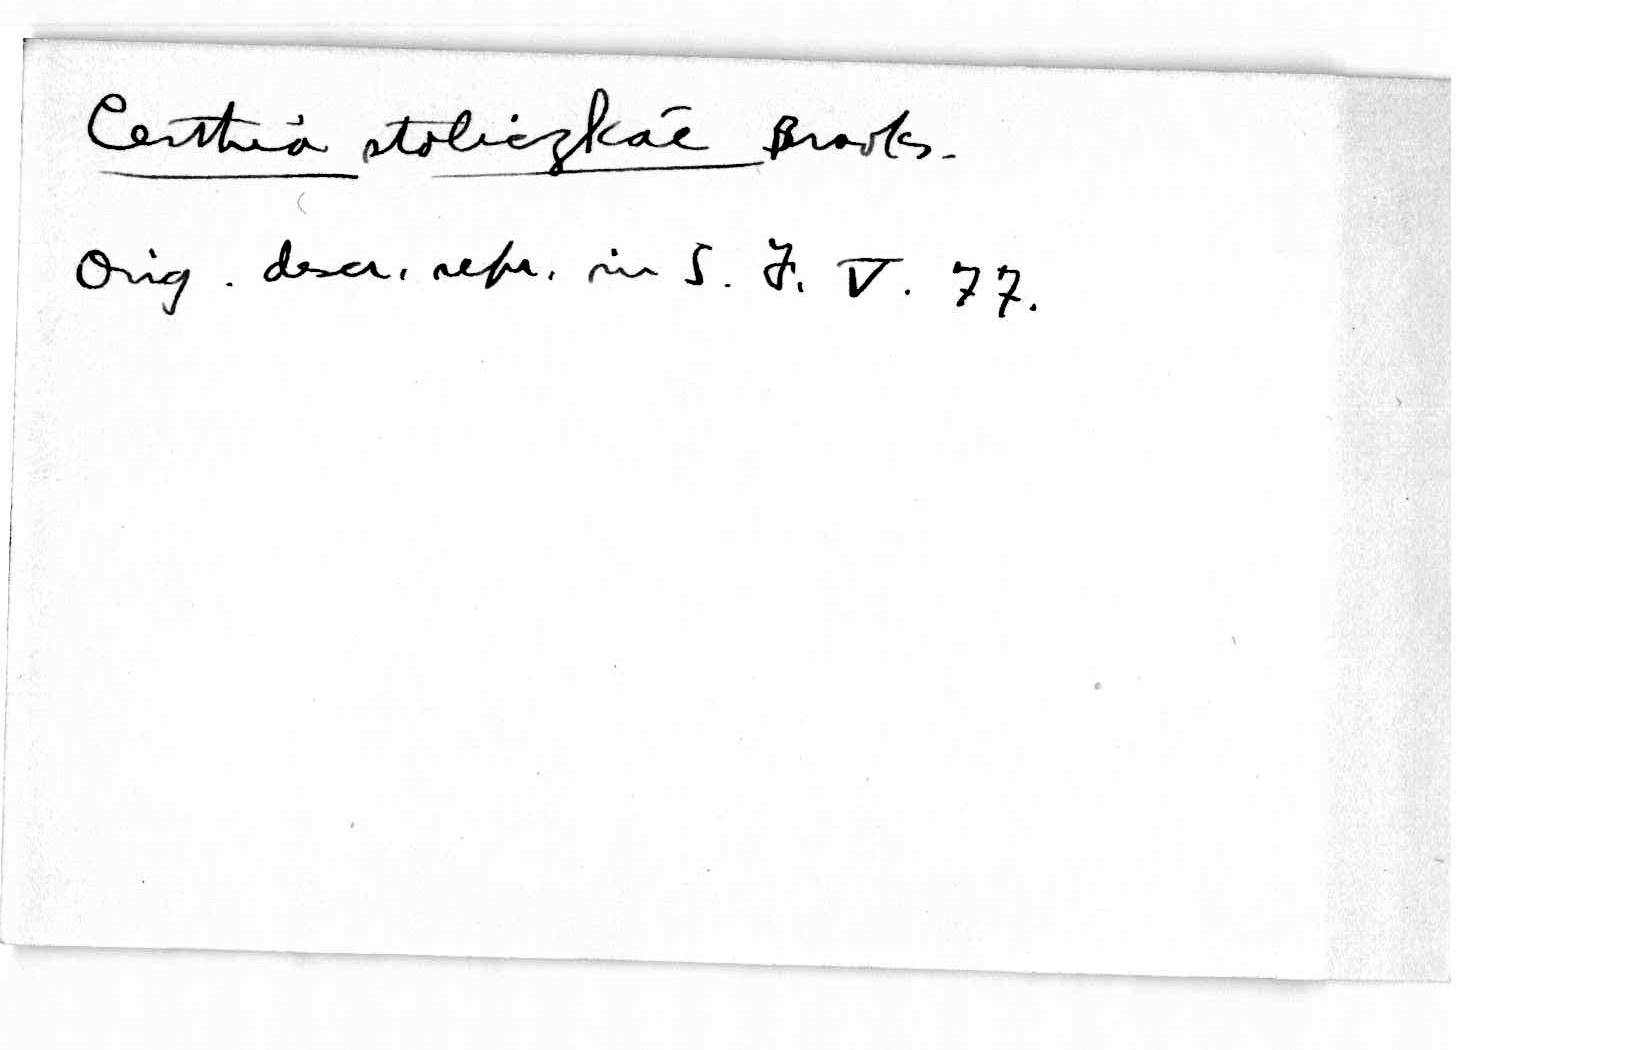 Certhia stoliczkae Brooks.
Orig. descr. repr. in S. F. V. 77.